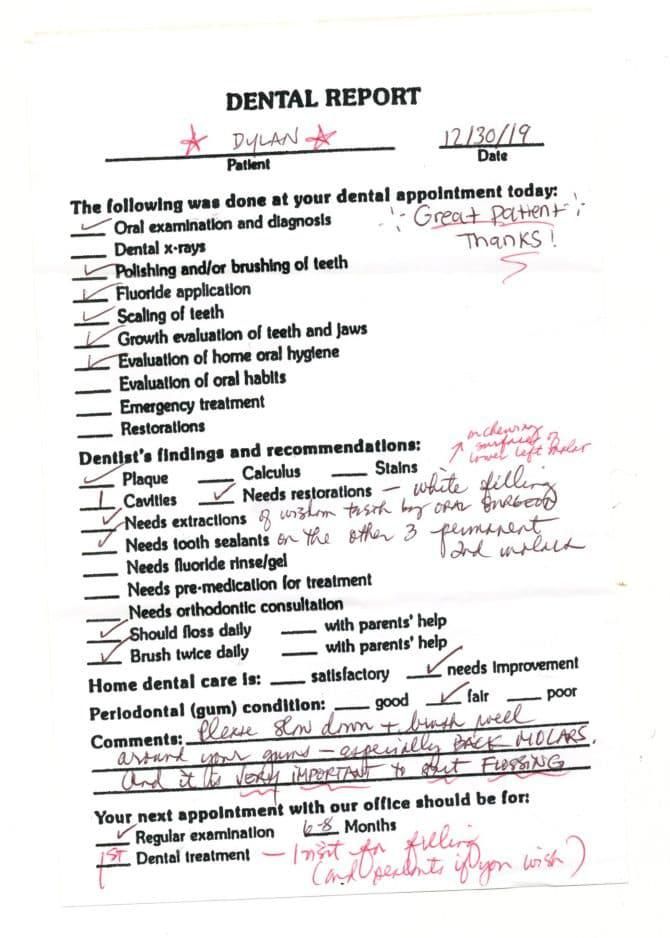 DENTAL REPORT
DYLAN 12/30/19
Patient Date
The following was done at your dental appointment today:
Oral examination and diagnosis
Great Patient
Thanks!
Dental x-rays
Polishing and/or brushing of teeth
Fluoride application
Scaling of teeth
Growth evaluation of teeth and jaws
Evaluation of home oral hygiene
Evaluation of oral habits
Emergency treatment
Restorations
on chewing
surfaces of
lower left molar
Dentist's findings and recommendations:
Plaque Calculus Stains
1 Cavities Needs restorations - white filling
Needs extractions of wisdom teeth by ORAL SURGEON
Needs tooth sealants on the other 3 permanent
2nd molars
Needs fluoride rinse/gel
Needs pre-medication for treatment
Needs orthodontic consultation
Should floss daily with parents' help
Brush twice daily with parents' help
Home dental care is: satisfactory needs improvement
Periodontal (gum) condition: good fair poor
Comments: Please slow down + brush well
around your gums - especially BACK MOLARS.
And it is VERY IMPORTANT to start FLOSSING
Your next appointment with our office should be for:
Regular examination 6-8 Months
1ST Dental treatment - 1 visit for filling
(and sealants if you wish)